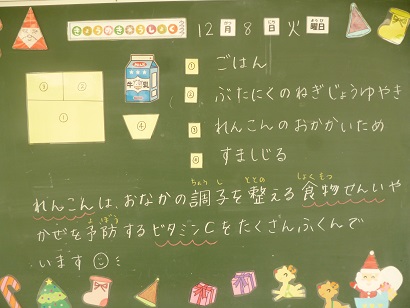 きょうのきゅうしょく
12月8日火曜日
がつ にち ようび
③ ② ①
牛乳
④
① ごはん
② ぶたにくのねぎじょうゆやき
③ れんこんのおかかいため
④ すましじる
ちょうし ととの しょくもつ
れんこんは、おなかの調子を整える食物せんいや
よぼう
かぜを予防するビタミンCをたくさんふくんで
います☺